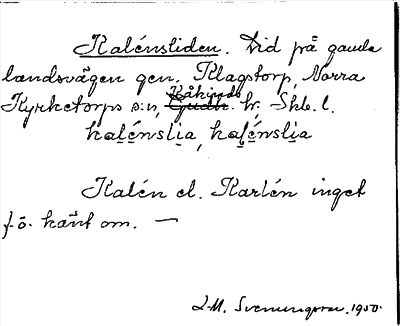 Kalénsliden. Lid på gamla
landsvägen gen. Klagstorp, Norra
Kyrketorps s:n, Kåkinds hr. Skb. l.
kalénslia, kalénslia
Kalén el. Karlén inget
f.ö. känt om. —
L-M. Svenungsson. 1950.